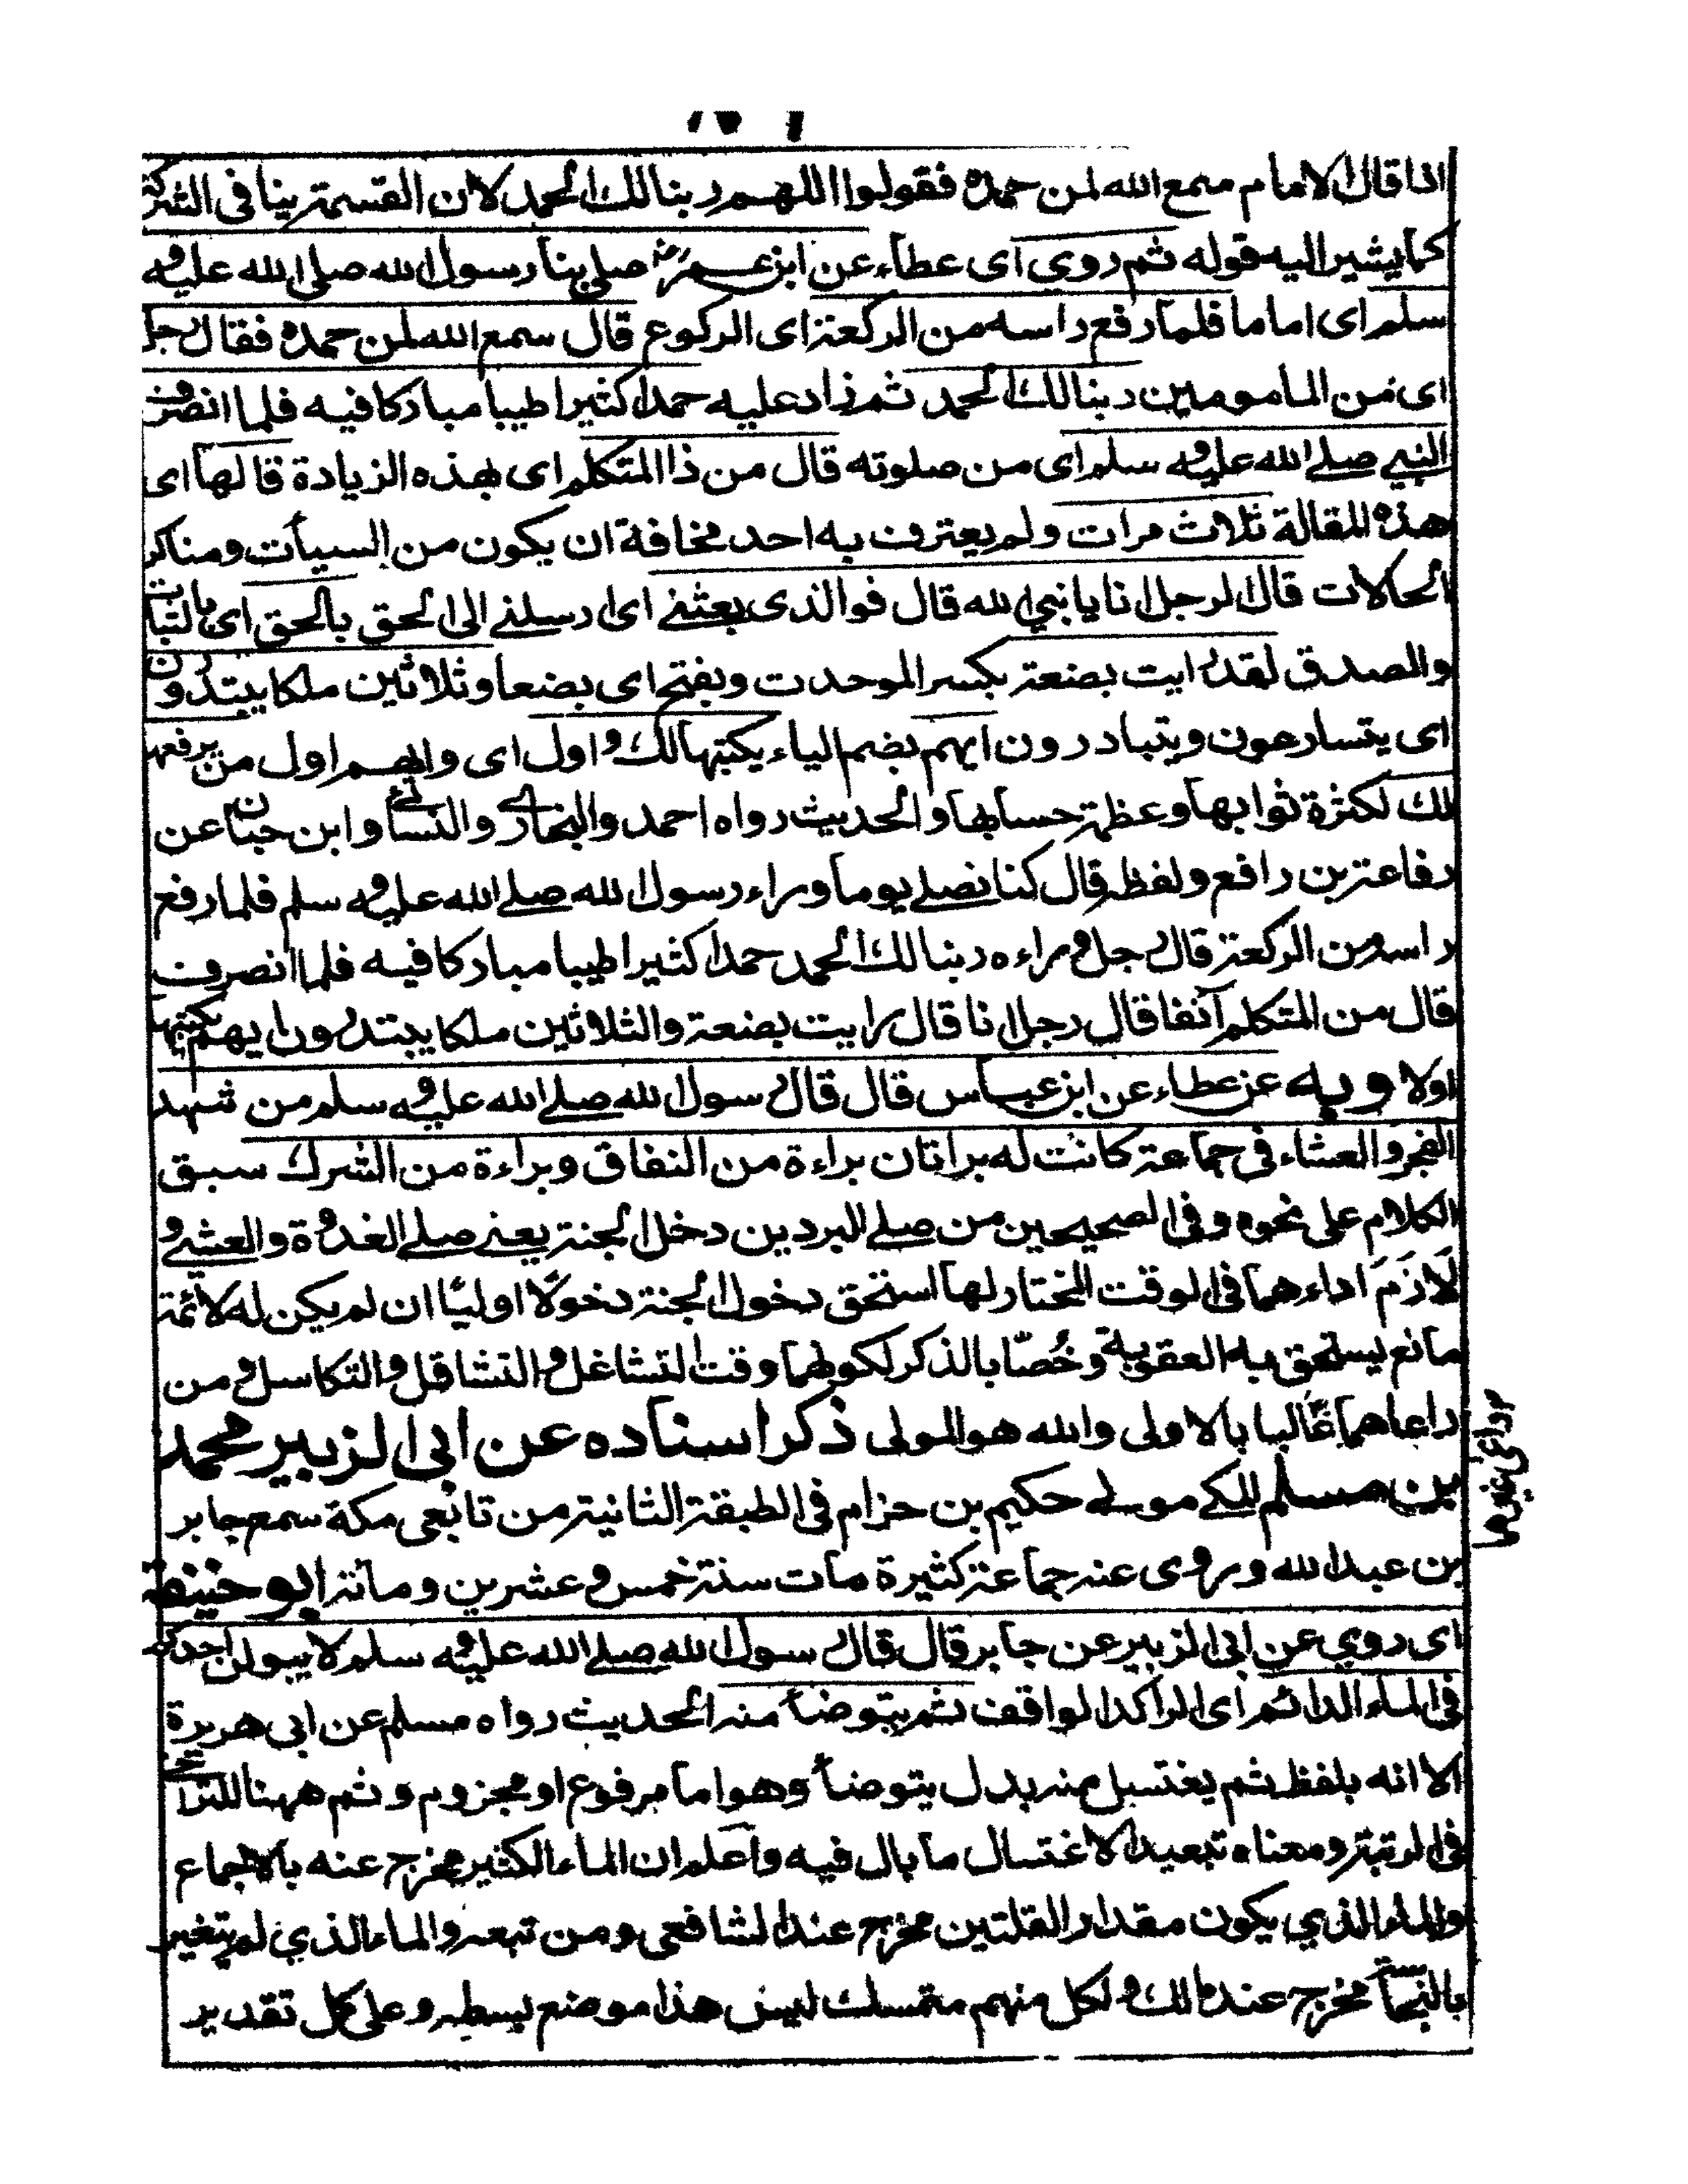 اذا قال الامام سمع الله لمن حمده فقولوا اللهم ربنا لك الحمد لان القسمة ينافى الشركة
كما يشير اليه قوله ثم روي اى عطاء عن ابن عمر رض صلى بنا رسول الله صلى الله عليه و
سلم اى اماما فلما رفع راسه من الركعة اى الركوع قال سمع الله لمن حمده فقال رجل
اى من المامومين ربنا لك الحمد ثم زاد عليه حمدا كثيرا طيبا مباركا فيه فلما انصرف
النبي صلے الله عليه و سلم اى من صلوته قال من ذا المتكلم اى بهذه الزيادة قالها اى
هذه المقالة ثلاث مرات ولم يعترف به احد مخافة ان يكون من السيأت ومناكر
الحالات قال الرجل انا يا نبي الله قال فوالذى بعثنے اى ارسلنے الى الحق بالحق اى بالثبات
والصدق لقد رايت بضعة بكسر الموحدت وبفتح اى بضعا وثلاثين ملكا يبتدرون
اى يتسارعون ويتبادرون ايهم بضم الياء يكتبها لك و اول اى وايهم اول من يرفعها
لك لكثرة ثوابها وعظمة حسابها والحديث رواه احمد والبخارے والنسائے وابن حبان عن
رفاعة بن رافع ولفظه قال كنا نصلے يوما وراء رسول الله صلے الله عليه و سلم فلما رفع
راسه من الركعة قال رجل وراءه ربنا لك الحمد حمدا كثيرا طيبا مباركا فيه فلما انصرف
قال من المتكلم آنفا قال رجل انا قال رايت بضعة والثلاثين ملكا يبتدرون ايهم يكتبها
اولا وبه عن عطاء عن ابن عباس قال قال رسول الله صلے الله عليه و سلم من شهد
الفجر والعشاء فى جماعة كانت له براتان براءة من النفاق وبراءة من الشرك سبق
الكلام على نحوه وفى الصحيحين من صلے البردين دخل الجنة يعنے صلے الغدوة والعشے و
لَازَمَ اداءهما فى الوقت المختار لها استحق دخول الجنة دخولًا اوليًا ان لم يكن له لائمة
مانع يستحق به العقوبة وخُصّا بالذكر لكونهما وقت التشاغل و التشاقل و التكاسل و من
راعاهما غالبا بالاولى والله هو المولى ذكر اسناده عن ابى الزبير محمد
بن مسلم المكے مولے حكيم بن حزام فى الطبقة الثانية من تابعى مكة سمع جابر
بن عبد الله وروى عنه جماعة كثيرة مات سنة خمس و عشرين ومائة ابو حنيفة
اى روي عن ابى الزبير عن جابر قال قال رسول الله صلے الله عليه و سلم لا يبولن احدكم
فى الماء الدائم اى الراكد الواقف ثم يتوضأ منه الحديث رواه مسلم عن ابى هريرة
الا انه بلفظ ثم يغتسل منه بدل يتوضأ وهو اما مرفوع او مجزوم وثم ههنا للتراخے
فى الرتبة ومعناه تبعيد الاغتسال ما بال فيه واعلم ان الماء الكثير مخرج عنه بالاجماع
والماء الذي يكون مقدار القلتين مخرج عند الشافعى ومن تبعه والماء الذي لم يتغير
بالنجاسة مخرج عند مالك و لكل منهم متمسك ليس هذا موضع بسطه وعلى كل تقدير